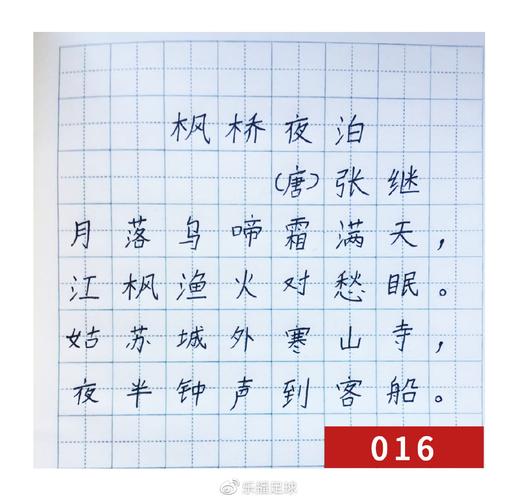 枫桥夜泊
(唐)张继
月落乌啼霜满天，
江枫渔火对愁眠。
姑苏城外寒山寺，
夜半钟声到客船。
016
乐摇足球